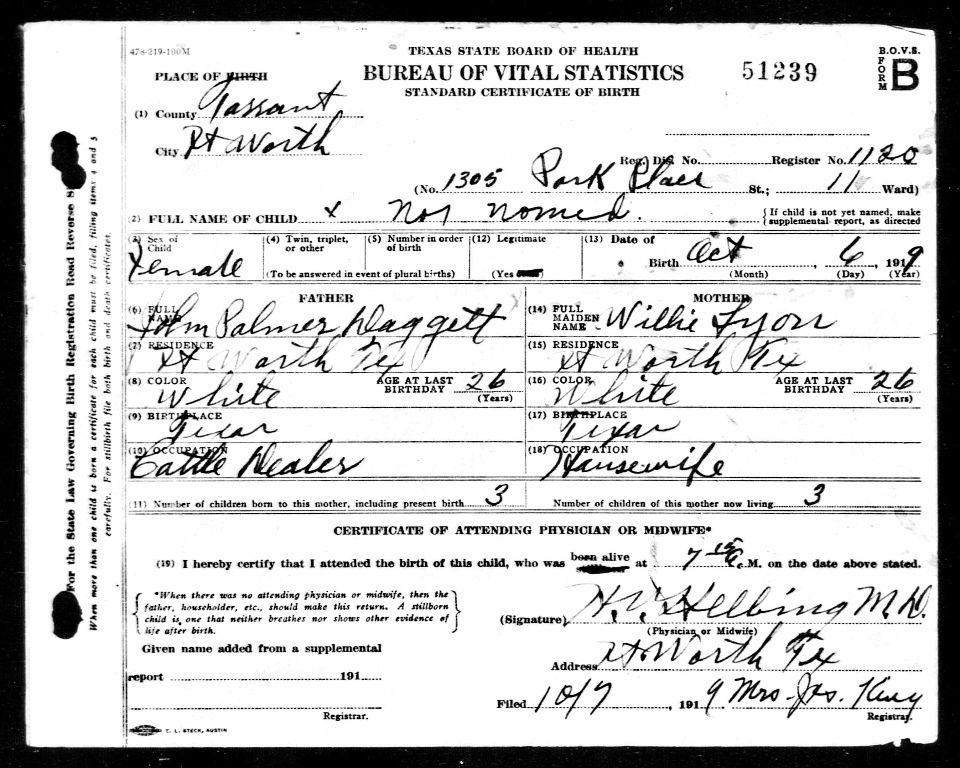 478-219-100M
TEXAS STATE BOARD OF HEALTH
BUREAU OF VITAL STATISTICS
STANDARD CERTIFICATE OF BIRTH
51239
B.O.V.S.
FORM B
PLACE OF BIRTH
(1) County Tarrant
City Ft Worth
Reg. Dis. No. Register No. 1120
(No. 1305 Park Place St.; 11 Ward)
(2) FULL NAME OF CHILD x Not named. {If child is not yet named, make supplemental report, as directed
(3) Sex of Child Female
(4) Twin, triplet, or other
(5) Number in order of birth
(To be answered in event of plural births)
(12) Legitimate
(Yes
(13) Date of Birth Oct, 6, 1919
(Month) (Day) (Year)
FATHER
(6) FULL NAME John Palmer Daggett
(7) RESIDENCE Ft Worth Tex
(8) COLOR White AGE AT LAST BIRTHDAY 26 (Years)
(9) BIRTHPLACE Texas
(10) OCCUPATION Cattle Dealer
MOTHER
(14) FULL MAIDEN NAME Willie Lyon
(15) RESIDENCE Ft Worth Tex
(16) COLOR White AGE AT LAST BIRTHDAY 26 (Years)
(17) BIRTHPLACE Texas
(18) OCCUPATION Housewife
(11) Number of children born to this mother, including present birth 3 Number of children of this mother now living 3
CERTIFICATE OF ATTENDING PHYSICIAN OR MIDWIFE*
(19) I hereby certify that I attended the birth of this child, who was born alive at 7 15 M. on the date above stated.
*When there was no attending physician or midwife, then the
father, householder, etc., should make this return. A stillborn
child is one that neither breathes nor shows other evidence of
life after birth.
(Signature) H. V. Helbing M.D.
(Physician or Midwife)
Given name added from a supplemental
report 191
Registrar.
Address Ft Worth Tex
Filed 10/7, 1919 Mrs. Jas. King
Registrar.
C. L. STECK, AUSTIN
For the State Law Governing Birth Registration Read Reverse S
When more than one child is born a certificate for each child must be filed, filling items 4 and 5
carefully. For stillbirth file both birth and death certificates.